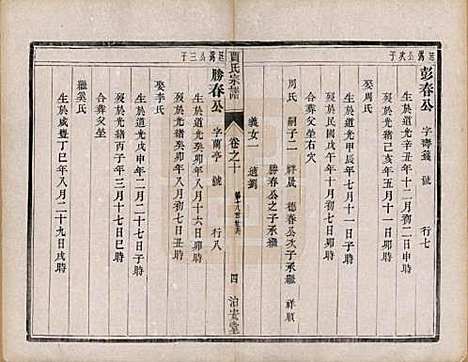 彭春公 字壽籛 號 行七
生於道光辛丑年十二月初十日卯時
歿於光緒己亥年五月二十日亥時
娶周氏
生於道光甲辰年七月初一日寅時
歿於民國戊午年十一月初六日卯時
合葬父坐右穴
周氏 嗣子二 祥晟 德春公次子承繼 祥順
勝春公之子承繼
義女一 適劉
賈氏宗譜
卷之十
四
治安堂
勝春公 字蘭亭 號 行八
生於道光癸卯年八月十六日卯時
歿於光緒癸卯年八月初七日丑時
娶李氏
生於道光戊申年二月二十七日子時
歿於光緒丙子年三月十七日巳時
合葬父坐
繼奚氏
生於咸豐丁巳年八月二十九日戌時